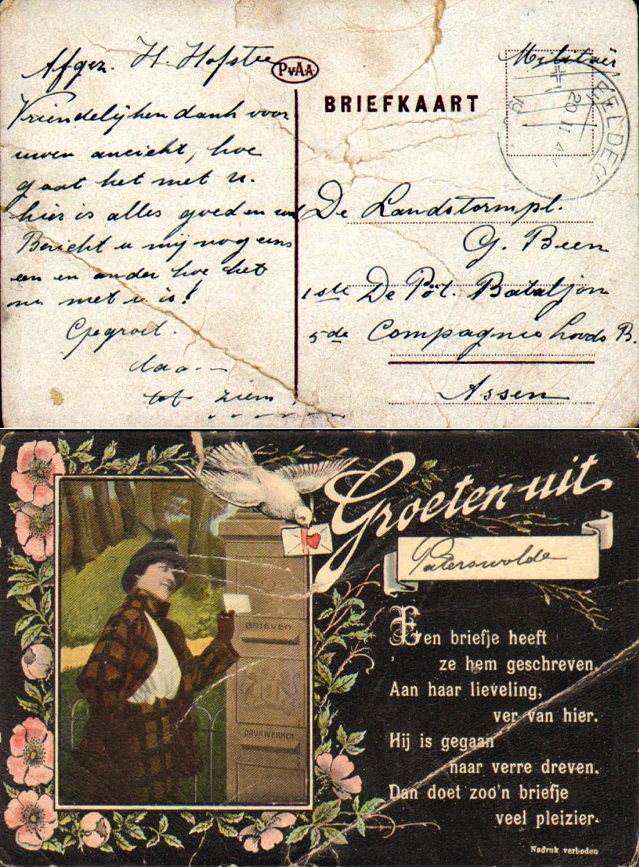 Afgez. H. Hofstee
Vriendelijken dank voor
uwen ancicht, hoe
gaat het met u.
hier is alles goed en wel
Bericht u mij nog eens
een en ander hoe het
nu met u is!
Gegroet.
daa--
tot ziens
PvAA
BRIEFKAART
Militair
20 II
De Landstormpl.
G. Been
1ste De Pot. Bataljon
5de Compagnie Hoofds B.
Assen
Groeten uit
Paterswolde
BRIEVEN
DRUKWERKEN
Een briefje heeft
ze hem geschreven,
Aan haar lieveling,
ver van hier.
Hij is gegaan
naar verre dreven.
Dan doet zoo'n briefje
veel pleizier.
Nadruk verboden